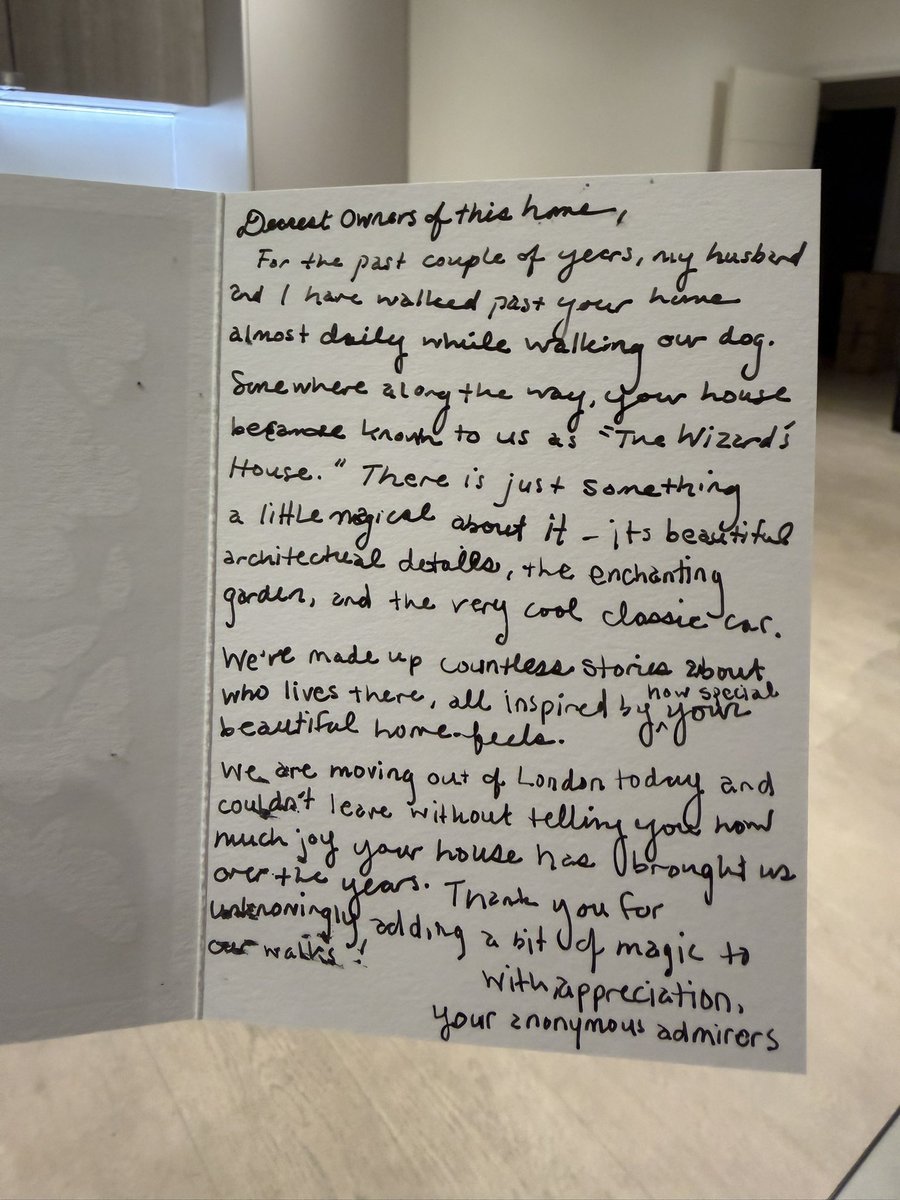 Dearest Owners of this home,
For the past couple of years, my husband
and I have walked past your home
almost daily while walking our dog.
Somewhere along the way, your house
became known to us as "The Wizard's
House." There is just something
a little magical about it - its beautiful
architectual details, the enchanting
garden, and the very cool classic car.
We've made up countless stories about
who lives there, all inspired by how special your
beautiful home feels.
We are moving out of London today and
couldn't leave without telling you how
much joy your house has brought us
over the years. Thank you for
unknowingly adding a bit of magic to
our walks!
with appreciation,
your anonymous admirers